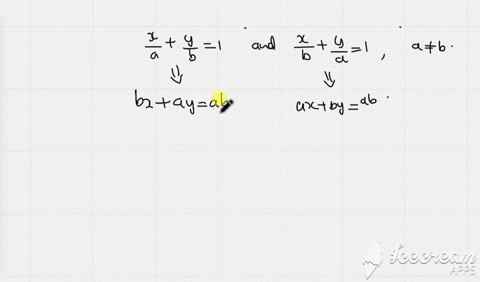 x/a + y/b = 1 and x/b + y/a = 1, a ≠ b.
⇓ ⇓
bx + ay = ab ax + by = ab
Icecream
APPS